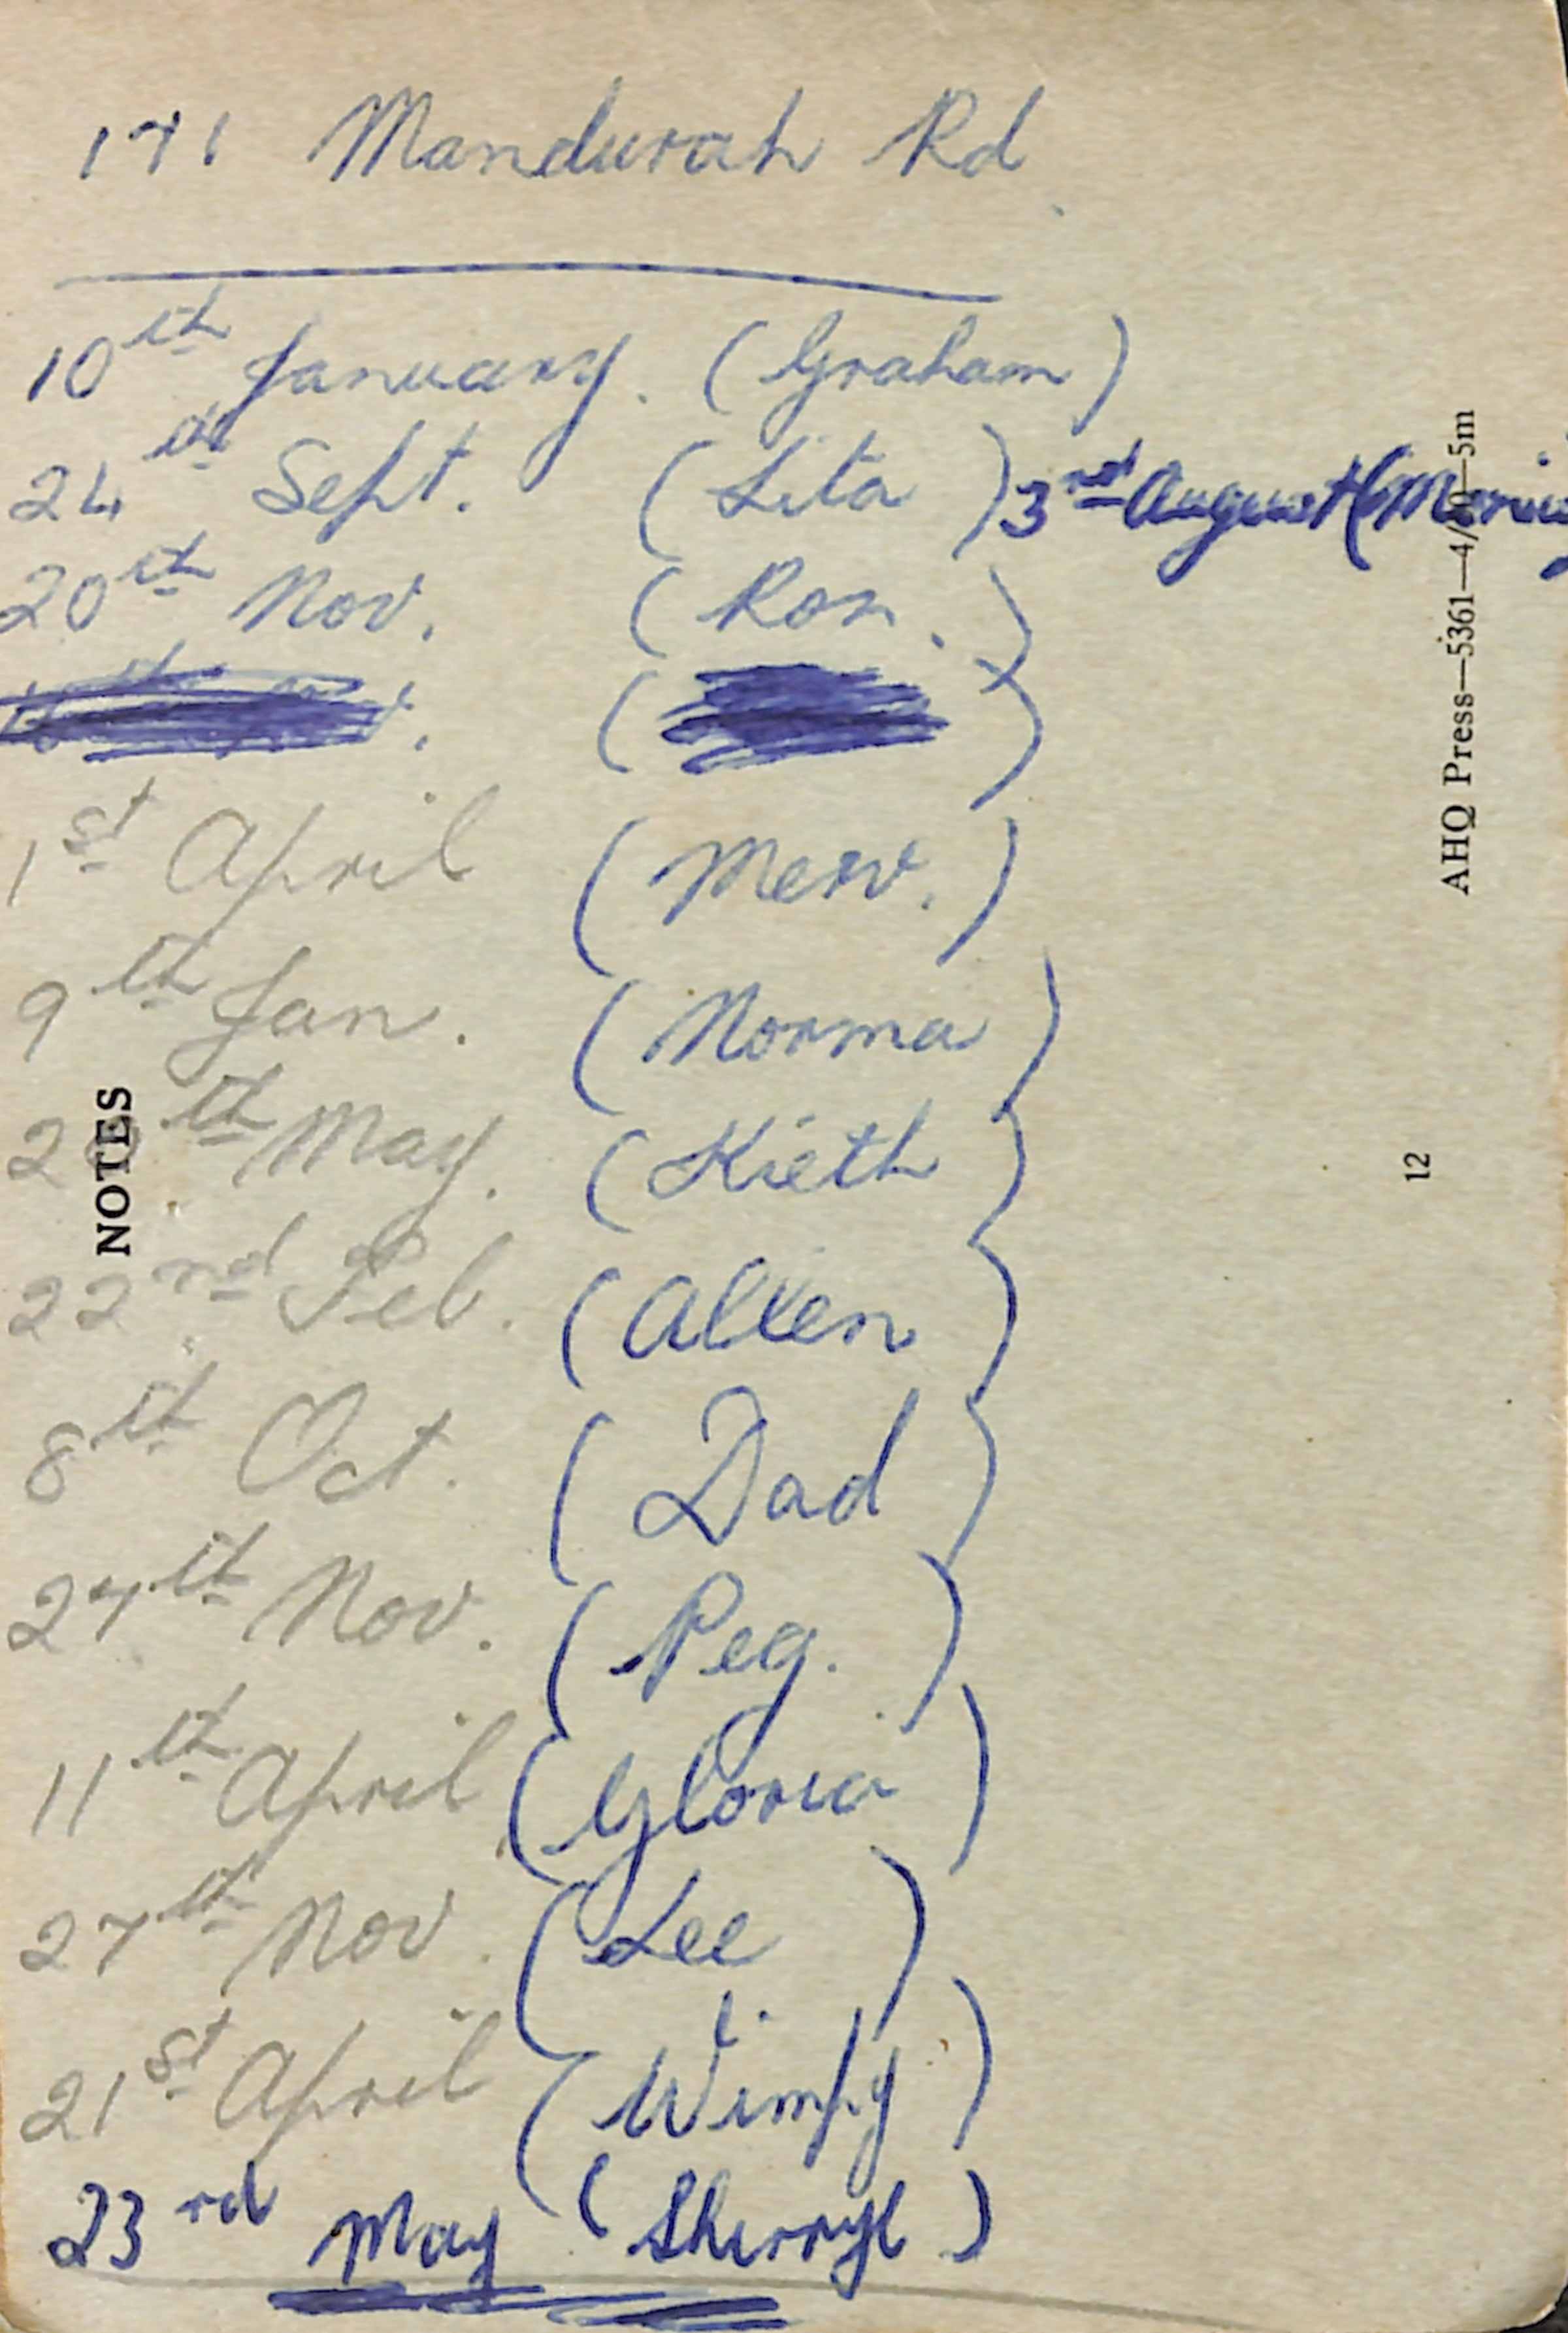 171 Mandurah Rd
10th January. (Graham)
24th Sept. (Lita) 3rd August (
20th Nov. (Ron.)
1st April (Merv.)
9th Jan. (Norma)
May. (Kieth)
22nd Feb. (Allen)
8th Oct. (Dad)
24th Nov. (Peg.)
11th April (Gloria)
27th Nov. (Lee)
21st April (Wimpy)
23rd May (Sherryl)
NOTES
12
AHQ Press—5361—4/ —5m